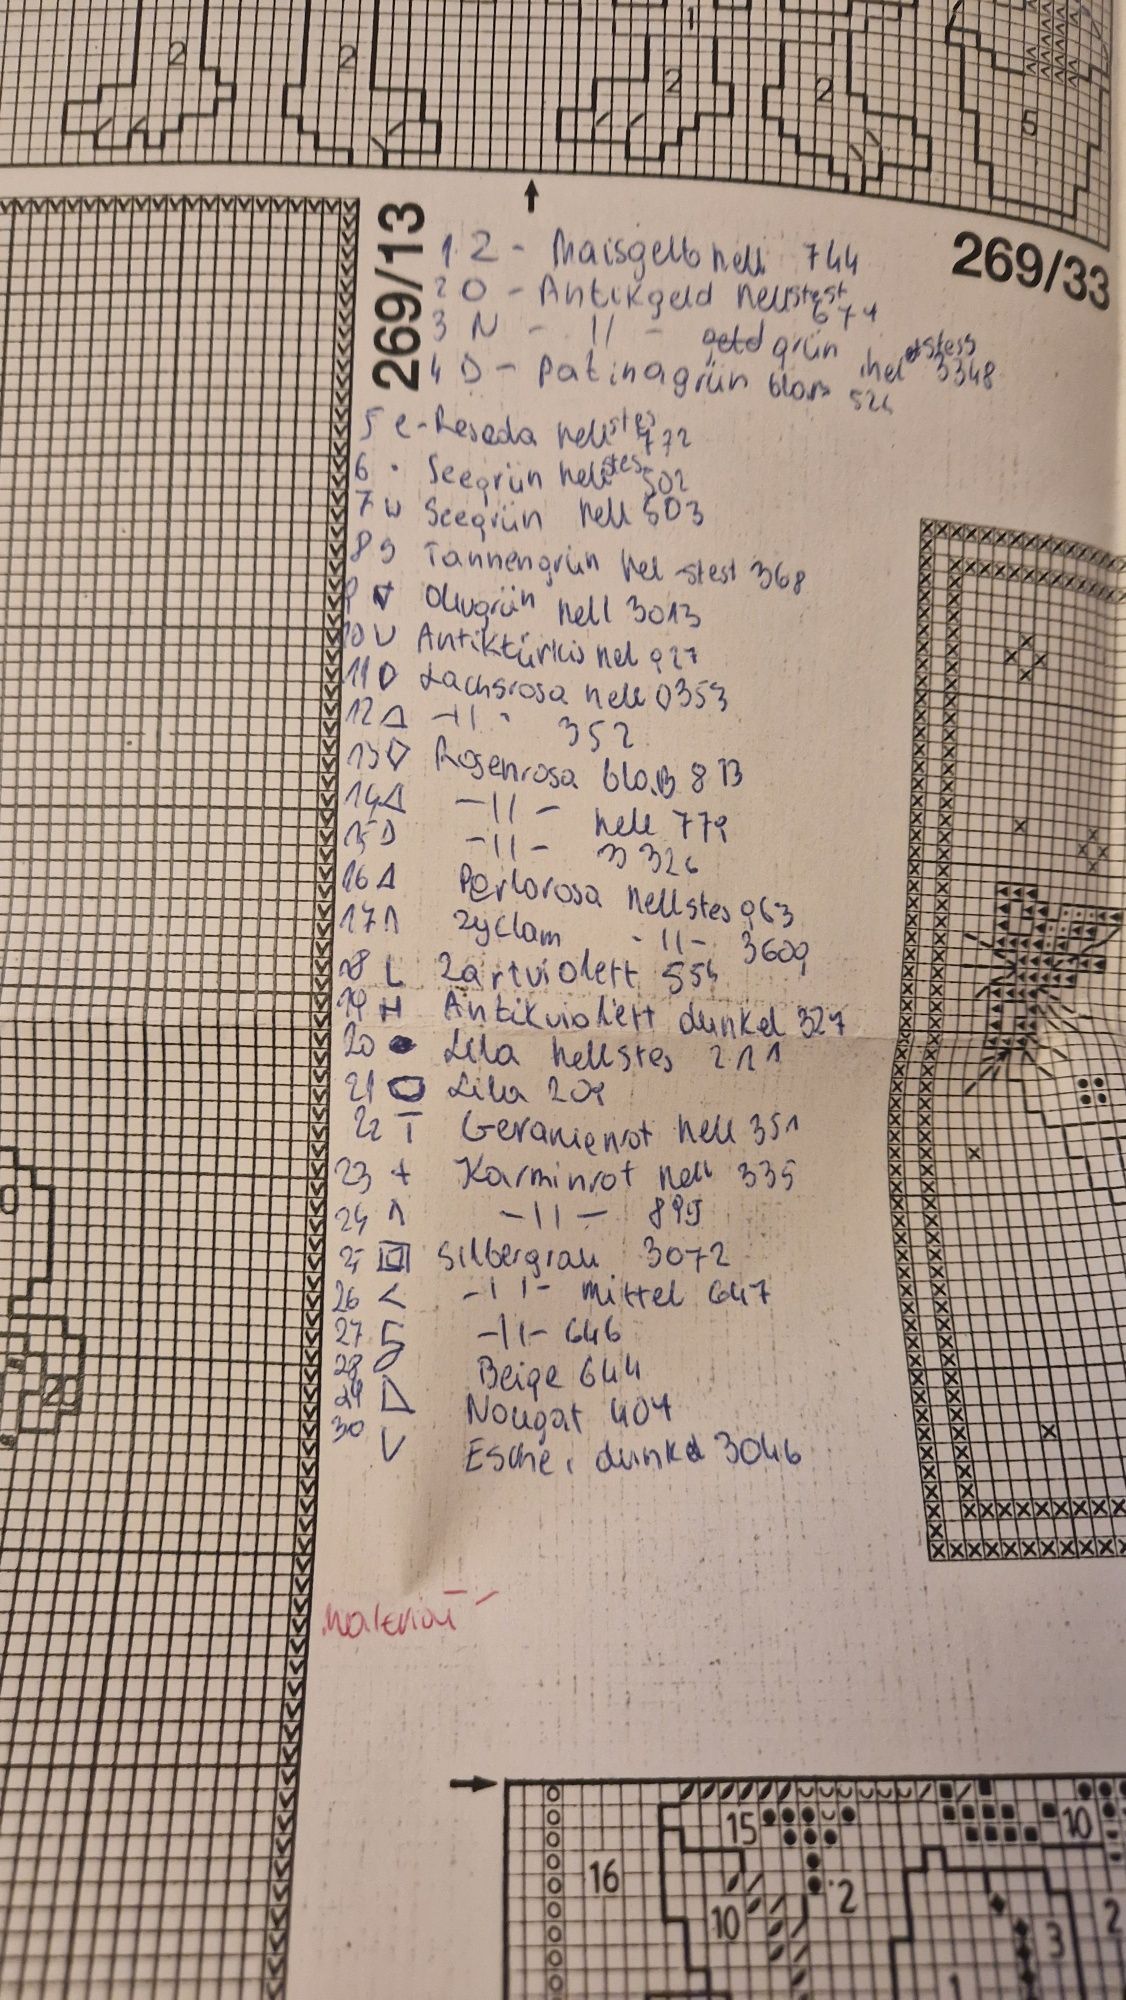 2
2
1
2
2
5
269/13
269/33
1 Z - Maisgelb hell 744
2 O - Antikgold hellstest 674
3 N - 11 - grün hellstes 3348
4 D - Patinagrün blass 524
5 e - Reseda hellstes 772
6 · Seegrün hellstes 502
7 w Seegrün hell 503
8 9 Tannengrün hel -stest 368
9 ▽ Olivgrün hell 3013
10 U Antiktürkis hel 927
11 D Lachsrosa hell 0353
12 △ -11- 352
13 Rosenrosa blaß 813
14 △ -11- hell 779
15 D -11- 3326
16 △ Perlorosa hellstes 963
17 ∧ Zyclam -11- 3609
18 L Zartviolett 554
19 H Antikviolett dunkel 327
20 ● Lila hellstes 211
21 O Lila 209
22 T Geranienrot hell 351
23 + Karminrot hell 335
24 ∧ -11- 899
25 Silbergrau 3072
26 < -11- mittel 647
27 -11- 646
28 Beige 644
29 Nougat 407
30 V Esche, dunkel 3046
Material
2
15
10
16
2
10
3
2
1